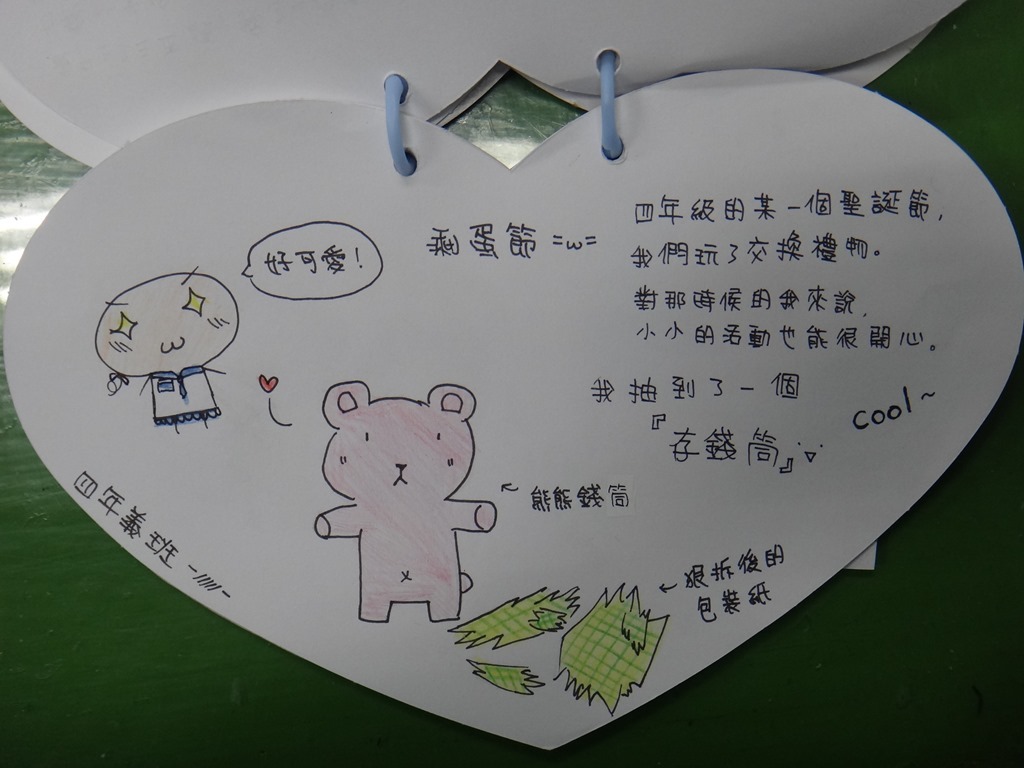 好可愛！
剩蛋節 =ω=
四年級的某一個聖誕節，
我們玩了交換禮物。
對那時候的我來說，
小小的活動也能很開心。
我抽到了一個
『存錢筒』
cool~
熊熊錢筒
狠拆後的
包裝紙
四年義班